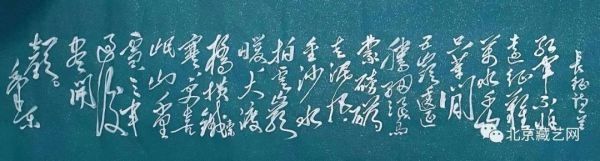 长征诗一首
红军不怕
远征难
万水千山
只等闲
五岭逶迤
腾细浪乌
蒙磅礴
走泥丸
金沙水
拍云崖
暖大渡
桥横铁索
寒更喜
岷山千里
雪三军
过后
尽开
颜
毛泽东
北京藏艺网